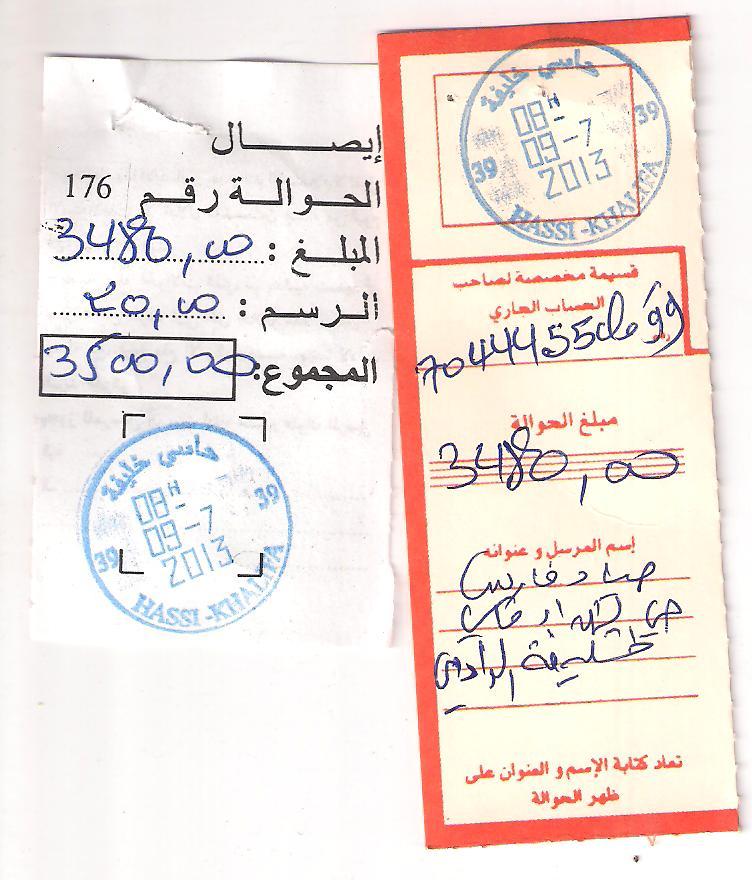 إيصال
الحوالة رقم 176
المبلغ : 3480,00
الرسم : 20,00
المجموع: 3500,00
حاسي خليفة
08H
39 09-7 39
2013
HASSI-KHALIFA
حاسي خليفة
08H
39 09-7 39
2013
HASSI-KHALIFA
قسيمة مخصصة لصاحب
الحساب الجاري
99
مبلغ الحوالة
3480,00
إسم المرسل و عنوانه
فارس
خليفة الوادي
تعاد كتابة الإسم و العنوان على
ظهر الحوالة